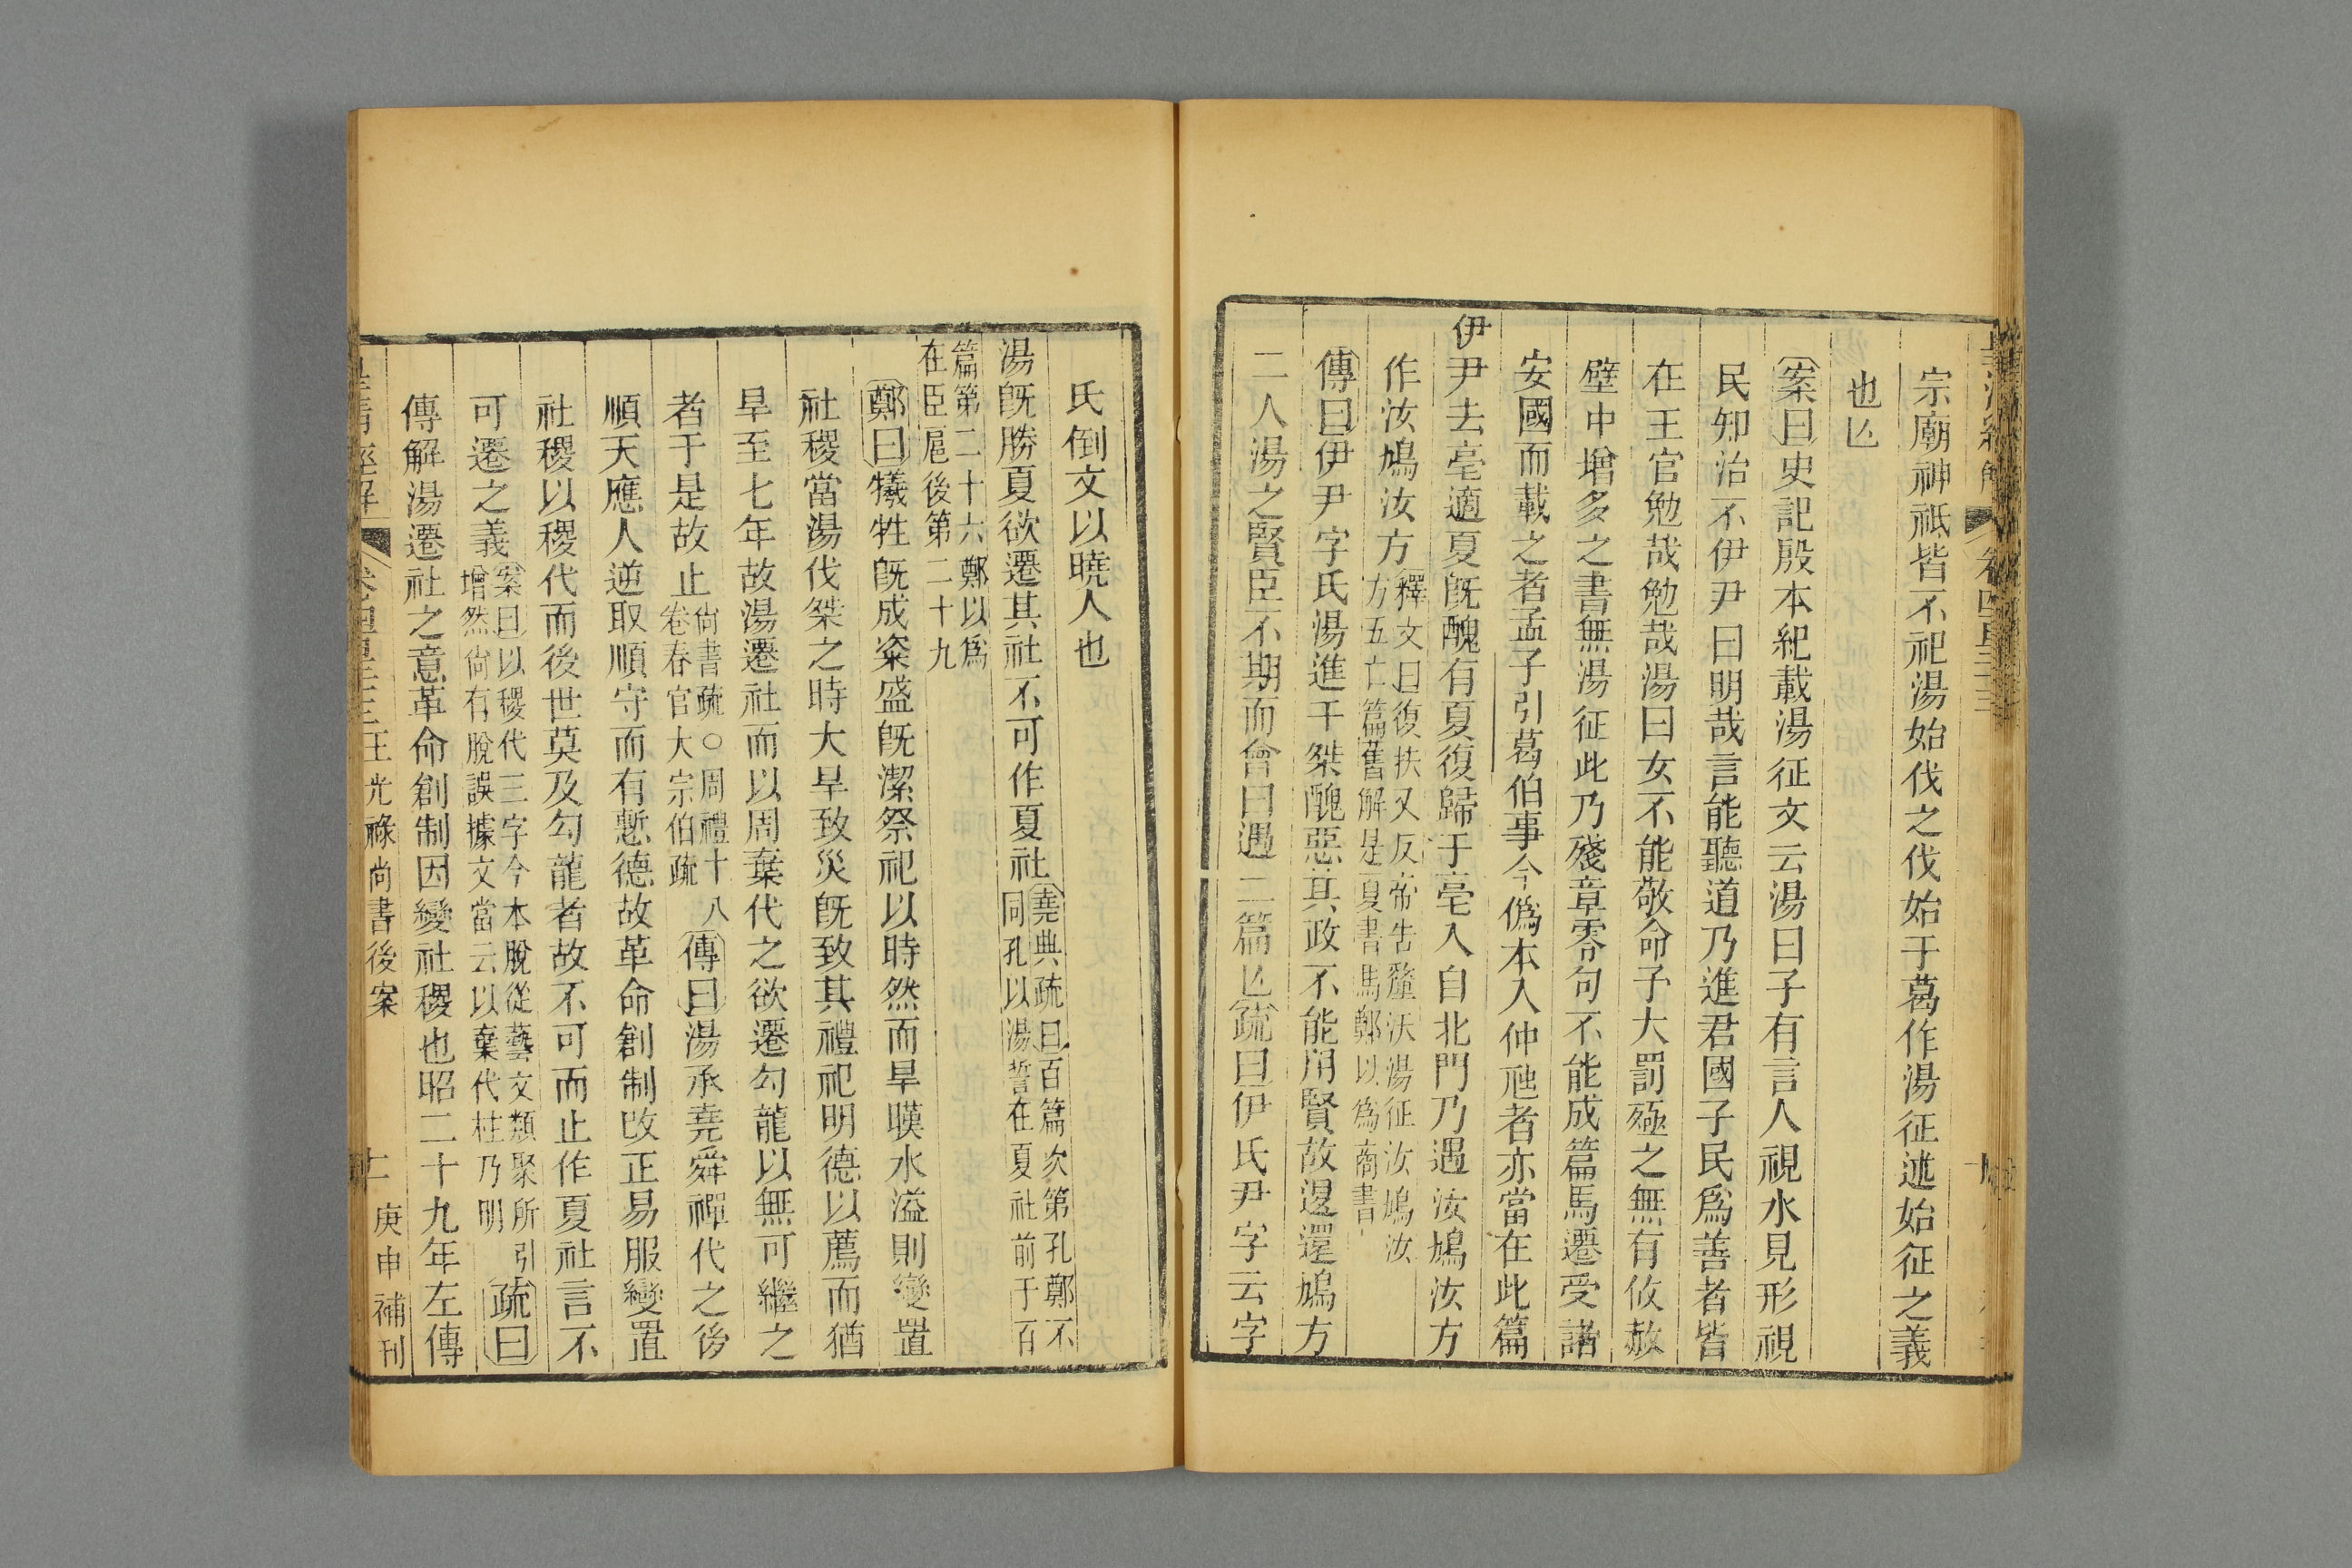 宗廟神祗皆不祀湯始伐之伐始于葛作湯征述始征之義
也亾
案曰史記殷本紀載湯征文云湯曰予有言人視水見形視
民知治不伊尹曰明哉言能聽道乃進君國子民爲善者皆
在王官勉哉勉哉湯曰女不能敬命予大罰殛之無有攸赦
壁中增多之書無湯征此乃殘章零句不能成篇馬遷受諸
安國而載之者孟子引葛伯事今僞本入仲虺者亦當在此篇
伊尹去亳適夏旣醜有夏復歸于亳入自北門乃遇汝鳩汝方
作汝鳩汝方釋文曰復扶又反帝告釐沃湯征汝鳩汝
方五亡篇舊解是夏書馬鄭以爲商書
傳曰伊尹字氏湯進于桀醜惡其政不能用賢故退還鳩方
二人湯之賢臣不期而會曰遇二篇亾疏曰伊氏尹字云字
氏倒文以曉人也
湯旣勝夏欲遷其社不可作夏社堯典疏曰百篇次第孔鄭不
同孔以湯誓在夏社前于百
篇第二十六鄭以爲
在臣扈後第二十九
鄭曰犧牲旣成粢盛旣潔祭祀以時然而旱暵水溢則變置
社稷當湯伐桀之時大旱致災旣致其禮祀明德以薦而猶
旱至七年故湯遷社而以周棄代之欲遷勾龍以無可繼之
者于是故止尙書疏○周禮十八
卷春官大宗伯疏傳曰湯承堯舜禪代之後
順天應人逆取順守而有慙德故革命創制改正易服變置
社稷以稷代而後世莫及勾龍者故不可而止作夏社言不
可遷之義案曰以稷代三字今本脫從藝文類聚所引
增然尙有脫誤據文當云以棄代柱乃明疏曰
傳解湯遷社之意革命創制因變社稷也昭二十九年左傳
皇清經解 卷四百三十三王光祿尙書後案 十二 庚申補刊